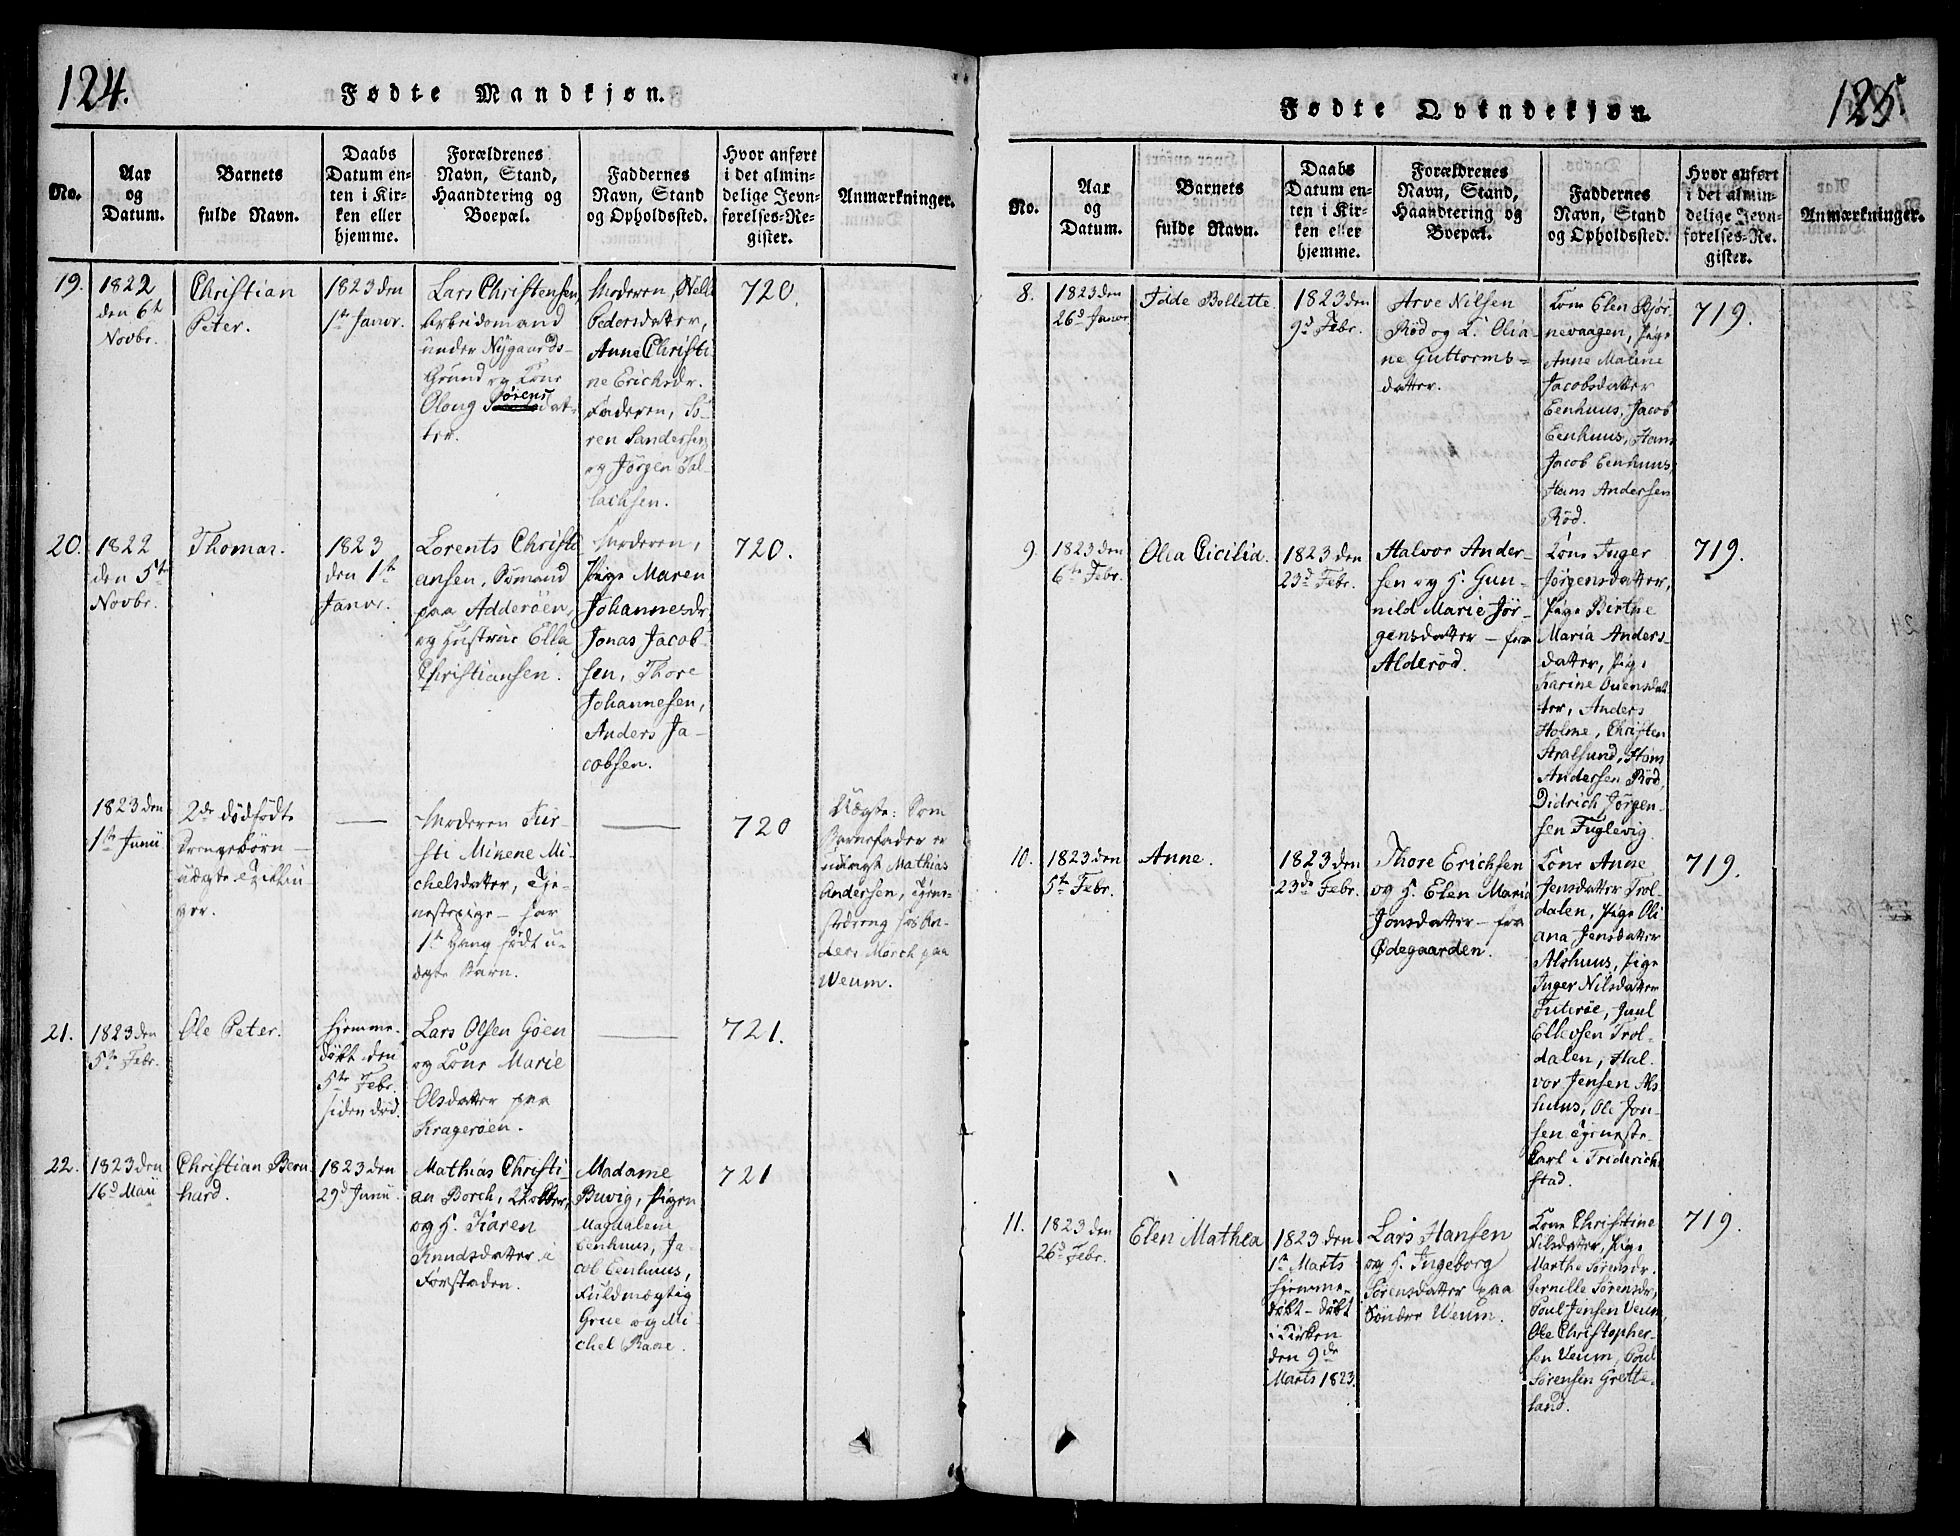 124.
Fødte Mandkjøn.
No.
Aar
og
Datum.
Barnets
fulde Navn.
Daabs
Datum en-
ten i Kir-
ken eller
hjemme.
Forældrenes
Navn, Stand,
Haandtering og
Boepæl.
Faddernes
Navn, Stand
og Opholdssted.
Hvor anført
i det almin-
delige Jevn-
førelses-Re-
gister.
Anmærkninger.
19.
1822
den 6te
Novbr.
Christian
Peter.
1823 den
1te Janvr.
Lars Christensen,
Arbeidsmand
under Nygaards-
Grund og Kone
Olong Sørensdat-
ter.
Moderen, Nelle
Pedersdatter,
Anne Christi-
ne Erichsdr.
Faderen, Sö-
ren Sandersen
og Jørgen Tal-
lachsen.
720.
20.
1822
den 5te
Novbr.
Thomas.
1823
den 1te
Janvr.
Lorents Christi-
ansen, Sömand
paa Adderöen,
og Hustrue Ella
Christiansen.
Moderen,
Pige Maren
Johannesdr
Jonas Jacob-
sen, Thore
Johannesen,
Anders Ja-
cobsen.
720.
1823 den
1te Junii
2de dödfödte
Drengebörn
uægte Tvillin-
ger.
Moderen Kir-
sti Mikene Mi-
chelsdatter, Tje-
nestepige - har
1te Gang födt u-
ægte Barn.
720
Uægte: Som
Barnefader er
udlagt Mathias
Andersen, Tjene-
stedreng hos An-
ders Morch paa
Weum.
21.
1823 den
5te Febr.
Ole Peter.
hjemme-
döbt den
5te Febr.
siden död.
Lars Olsen Göen
og Kone Marie
Olsdatter paa
Kragerøen.
721.
22.
1823 den
16d Maii
Christian Bern-
hard.
1823 den
29d Junii
Mathias Christi-
an Borch,
og H. Karen
Knudsdatter i
Forstaden.
Madame
Buvig, Pigen
Magdalene
Eenhuus, Ja-
cob Eenhuus,
Fuldmægtig
Grue og Mi-
chel Raae.
721
125
Fødte Qvindekjøn.
No.
Aar
og
Datum.
Barnets
fulde Navn.
Daabs
Datum en-
ten i Kir-
ken eller
hjemme.
Forældrenes
Navn, Stand,
Haandtering og
Boepæl.
Faddernes
Navn, Stand
og Opholdssted.
Hvor anført
i det almin-
delige Jevn-
førelses-Re-
gister.
Anmærkninger.
8.
1823 den
26d Janvr
Idde Bollette
1823 den
9d Febr.
Arve Nilsen
Röd og K. Olia-
ne Guttorms-
datter.
Kone Elen Bjør-
nevaagen, Pige
Anne Malene
Jacobsdatter
Eenhuus, Jacob
Eenhuus, Hans
Jacob Eenhuus,
Hans Andersen
Röd.
719.
9.
1823 den
6te Febr.
Olea Cicilia.
1823 den
23d Febr.
Halvor Ander-
sen og H. Gun-
nild Marie Jör-
gensdatter - fra
Alderöd.
Kone Inger
Jörgensdatter,
Pige Birthe
Maria Anders-
datter, Pige
Karine Ouensdat-
ter, Anders
Holme, Christen
Stralsund, Hans
Andersen Röd,
Didrich Jørgen-
sen Fuglevig.
719.
10.
1823 den
5te Febr.
Anne.
1823 den
23de Febr.
Thore Erichsen
og H. Elen Maria
Jonsdatter - fra
Ødegaarden.
Kone Anne
Jensdatter Trol-
dalen, Pige Oli-
ana Jensdatter
Alshuus, Pige
Inger Nilsdatter
Futeröe, Juul
Ellevsen Trol-
dalen, Hal-
vor Jensen Als-
huus, Ole Jon-
sen Tjeneste-
karl i Friderich-
stad.
719.
11.
1823 den
26d Febr.
Elen Mathea
1823 den
1te Marts
hjemme-
döbt - döbt
i Kirken
den 9de
Marts 1823.
Lars Hansen
og H. Ingeborg
Sörensdatter paa
Söndre Weum.
Kone Christine
Nilsdatter, Pige
Marthe Sörensdr.
Pernille Sörensdr,
Poul Jensen Veum,
Ole Christopher-
sen Veum, Poul
Sörensen Grette-
land.
719.